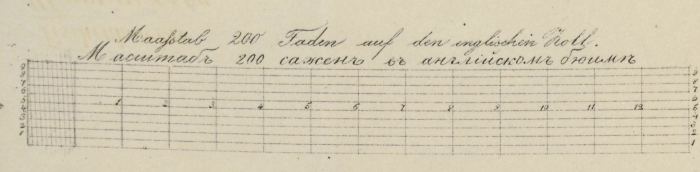 Maaßstab 200 Faden auf den englischen Zoll.
Масштабъ 200 саженъ въ англійскомъ дюймѣ
9 8 7 6 5 4 3 2 1
1 2 3 4 5 6 7 8 9 10 11 12
9 8 7 6 5 4 3 2 1